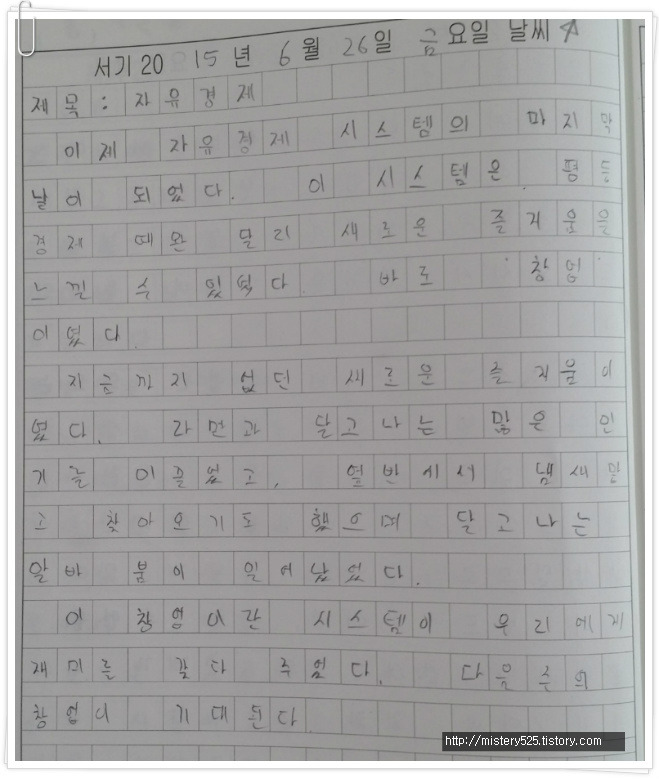 서기 2015년 6월 26일 금요일 날씨
제목: 자유경제
이제 자유경제 시스템의 마지막
날이 되었다. 이 시스템은 평등
경제 때완 달리 새로운 즐거움을
느낄 수 있었다. 바로 창업
이였다.
지금까지 없던 새로운 즐거움이
였다. 라면과 달고나는 많은 인
기를 이끌었고, 옆반에서 냄새맡
고 찾아오기도 했으며 달고나는
알바 붐이 일어났었다.
이 창업이란 시스템이 우리에게
재미를 갖다 주었다. 다음주의
창업이 기대된다.
http://mistery525.tistory.com